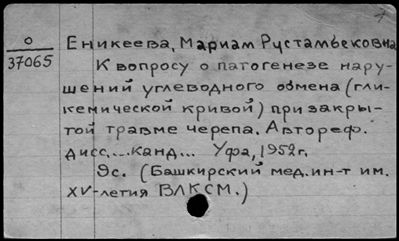 О
37065
Еникеева, Мариам Рустамбековна
К вопросу о патогенезе нару-
шений углеводного обмена (гли-
кемической кривой) при закры-
той травме черепа. Автореф.
дисс.... канд... Уфа, 1952г.
9с. (Башкирский мед. ин-т им.
XV-летия ВЛКСМ.)